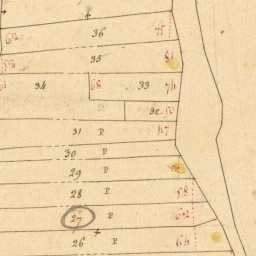 36 75
35
34 68 33 74
32 50
31 P 47
30 P
29 P
28 P 58
27 P 62
26 P 64